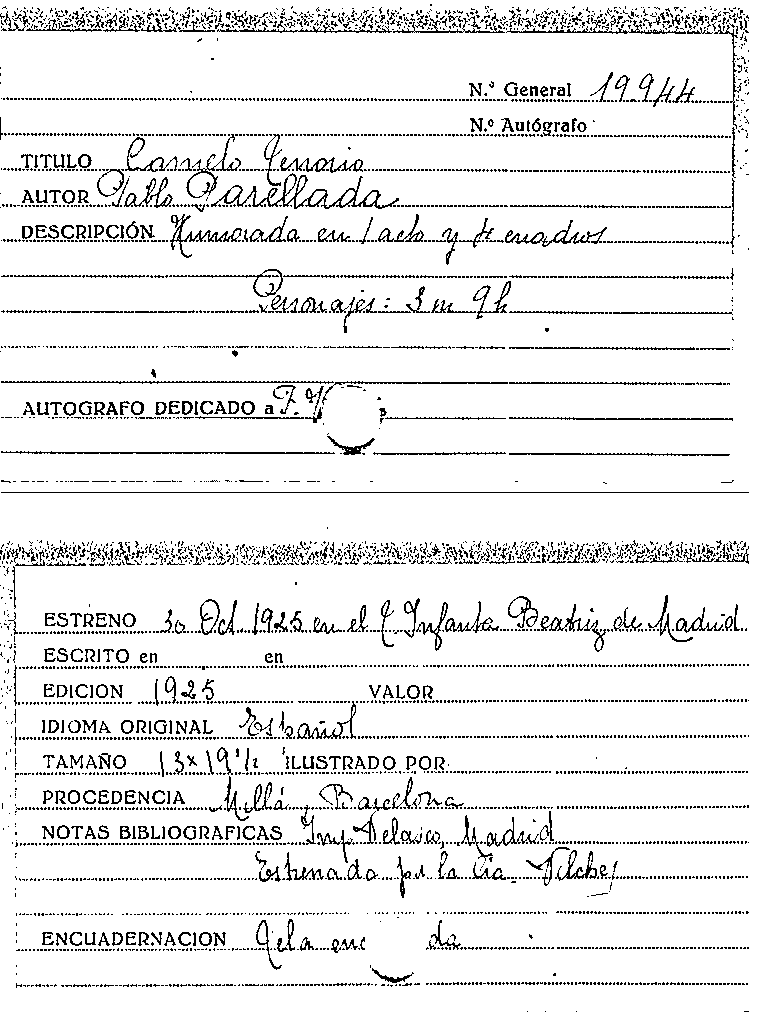 N.º General 19.944
N.º Autógrafo
TITULO Camelo Tenorio
AUTOR Pablo Parellada
DESCRIPCIÓN Humorada en 1 acto y cuadros
Personajes: 3 m 9 h
AUTOGRAFO DEDICADO a
ESTRENO 30 Oct. 1925 en el T. Infanta Beatriz de Madrid
ESCRITO en en
EDICION 1925 VALOR
IDIOMA ORIGINAL Español
TAMAÑO 13 x 19 1/2 ILUSTRADO POR
PROCEDENCIA Millá, Barcelona
NOTAS BIBLIOGRAFICAS Imp. Velasco, Madrid
Estrenada por la Cía. Vilches
ENCUADERNACION Tela enc da